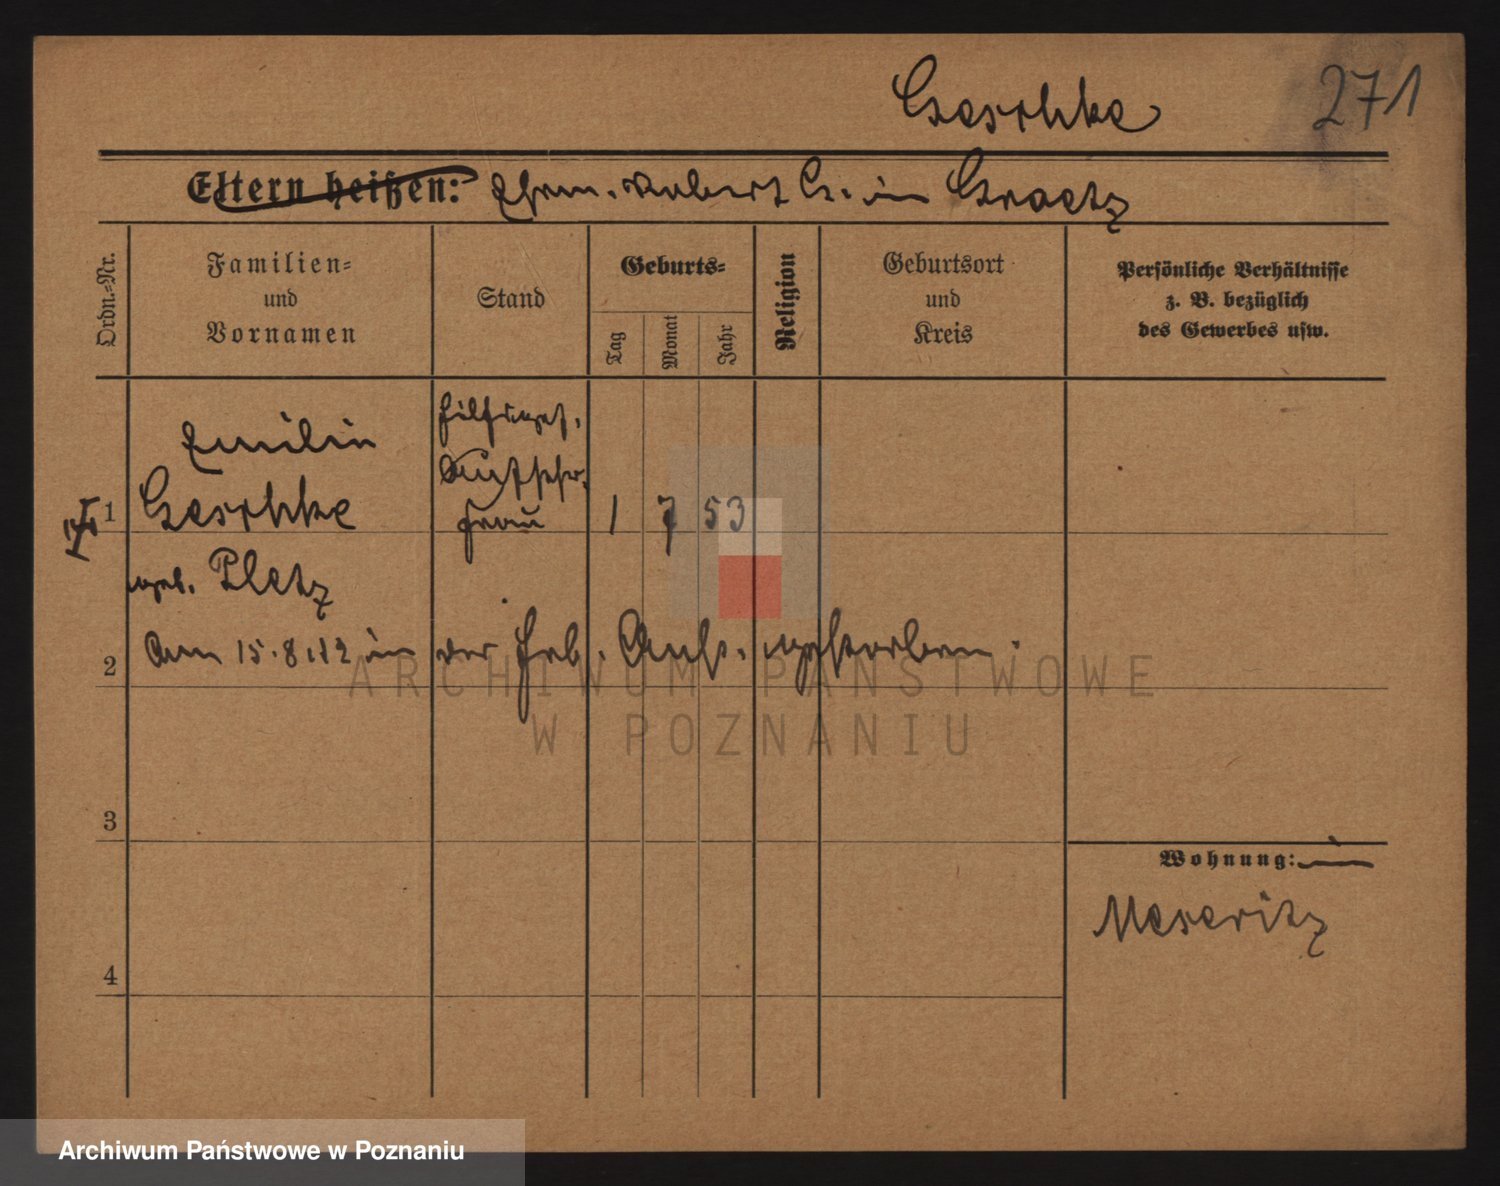 Geschke
271
Eltern heißen: Ehem. Robert G. in Graetz
Ordn.-Nr.
Familien-
und
Vornamen
Stand
Geburts-
Tag
Monat
Jahr
Religion
Geburtsort
und
Kreis
Persönliche Verhältnisse
z. B. bezüglich
des Gewerbes usw.
Emilie
Geschke
1
frau
1 7 53
geb. Pletz
2
am 15.8.12 in der Heb. Anst. gestorben.
ARCHIWUM PAŃSTWOWE
W POZNANIU
3
Wohnung: in
Meseritz
4
Archiwum Państwowe w Poznaniu